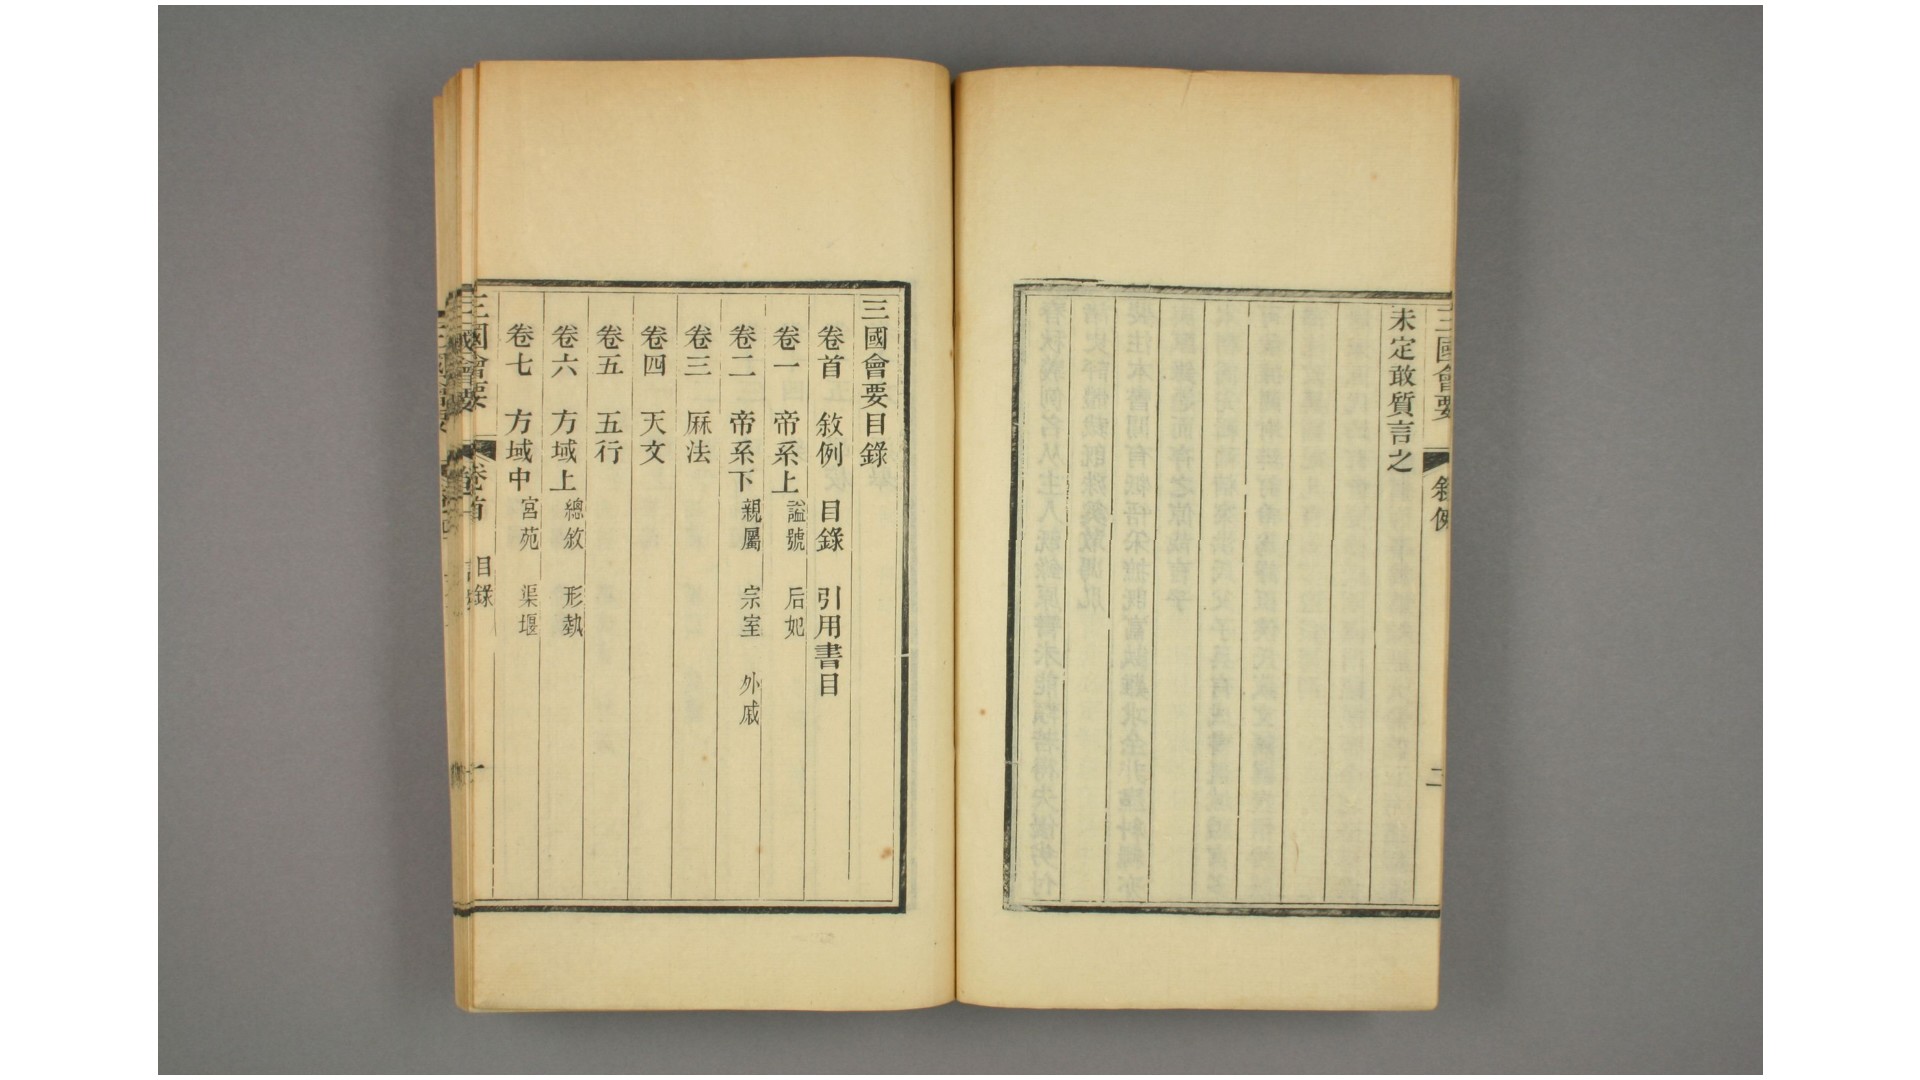 三國會要
敘例
二
未定敢質言之
三國會要目錄
卷首 敘例 目錄 引用書目
卷一 帝系上 謚號 后妃
卷二 帝系下 親屬 宗室 外戚
卷三 厤法
卷四 天文
卷五 五行
卷六 方域上 總敘 形埶
卷七 方域中 宮苑 渠堰
三國會要
卷首
目錄
一